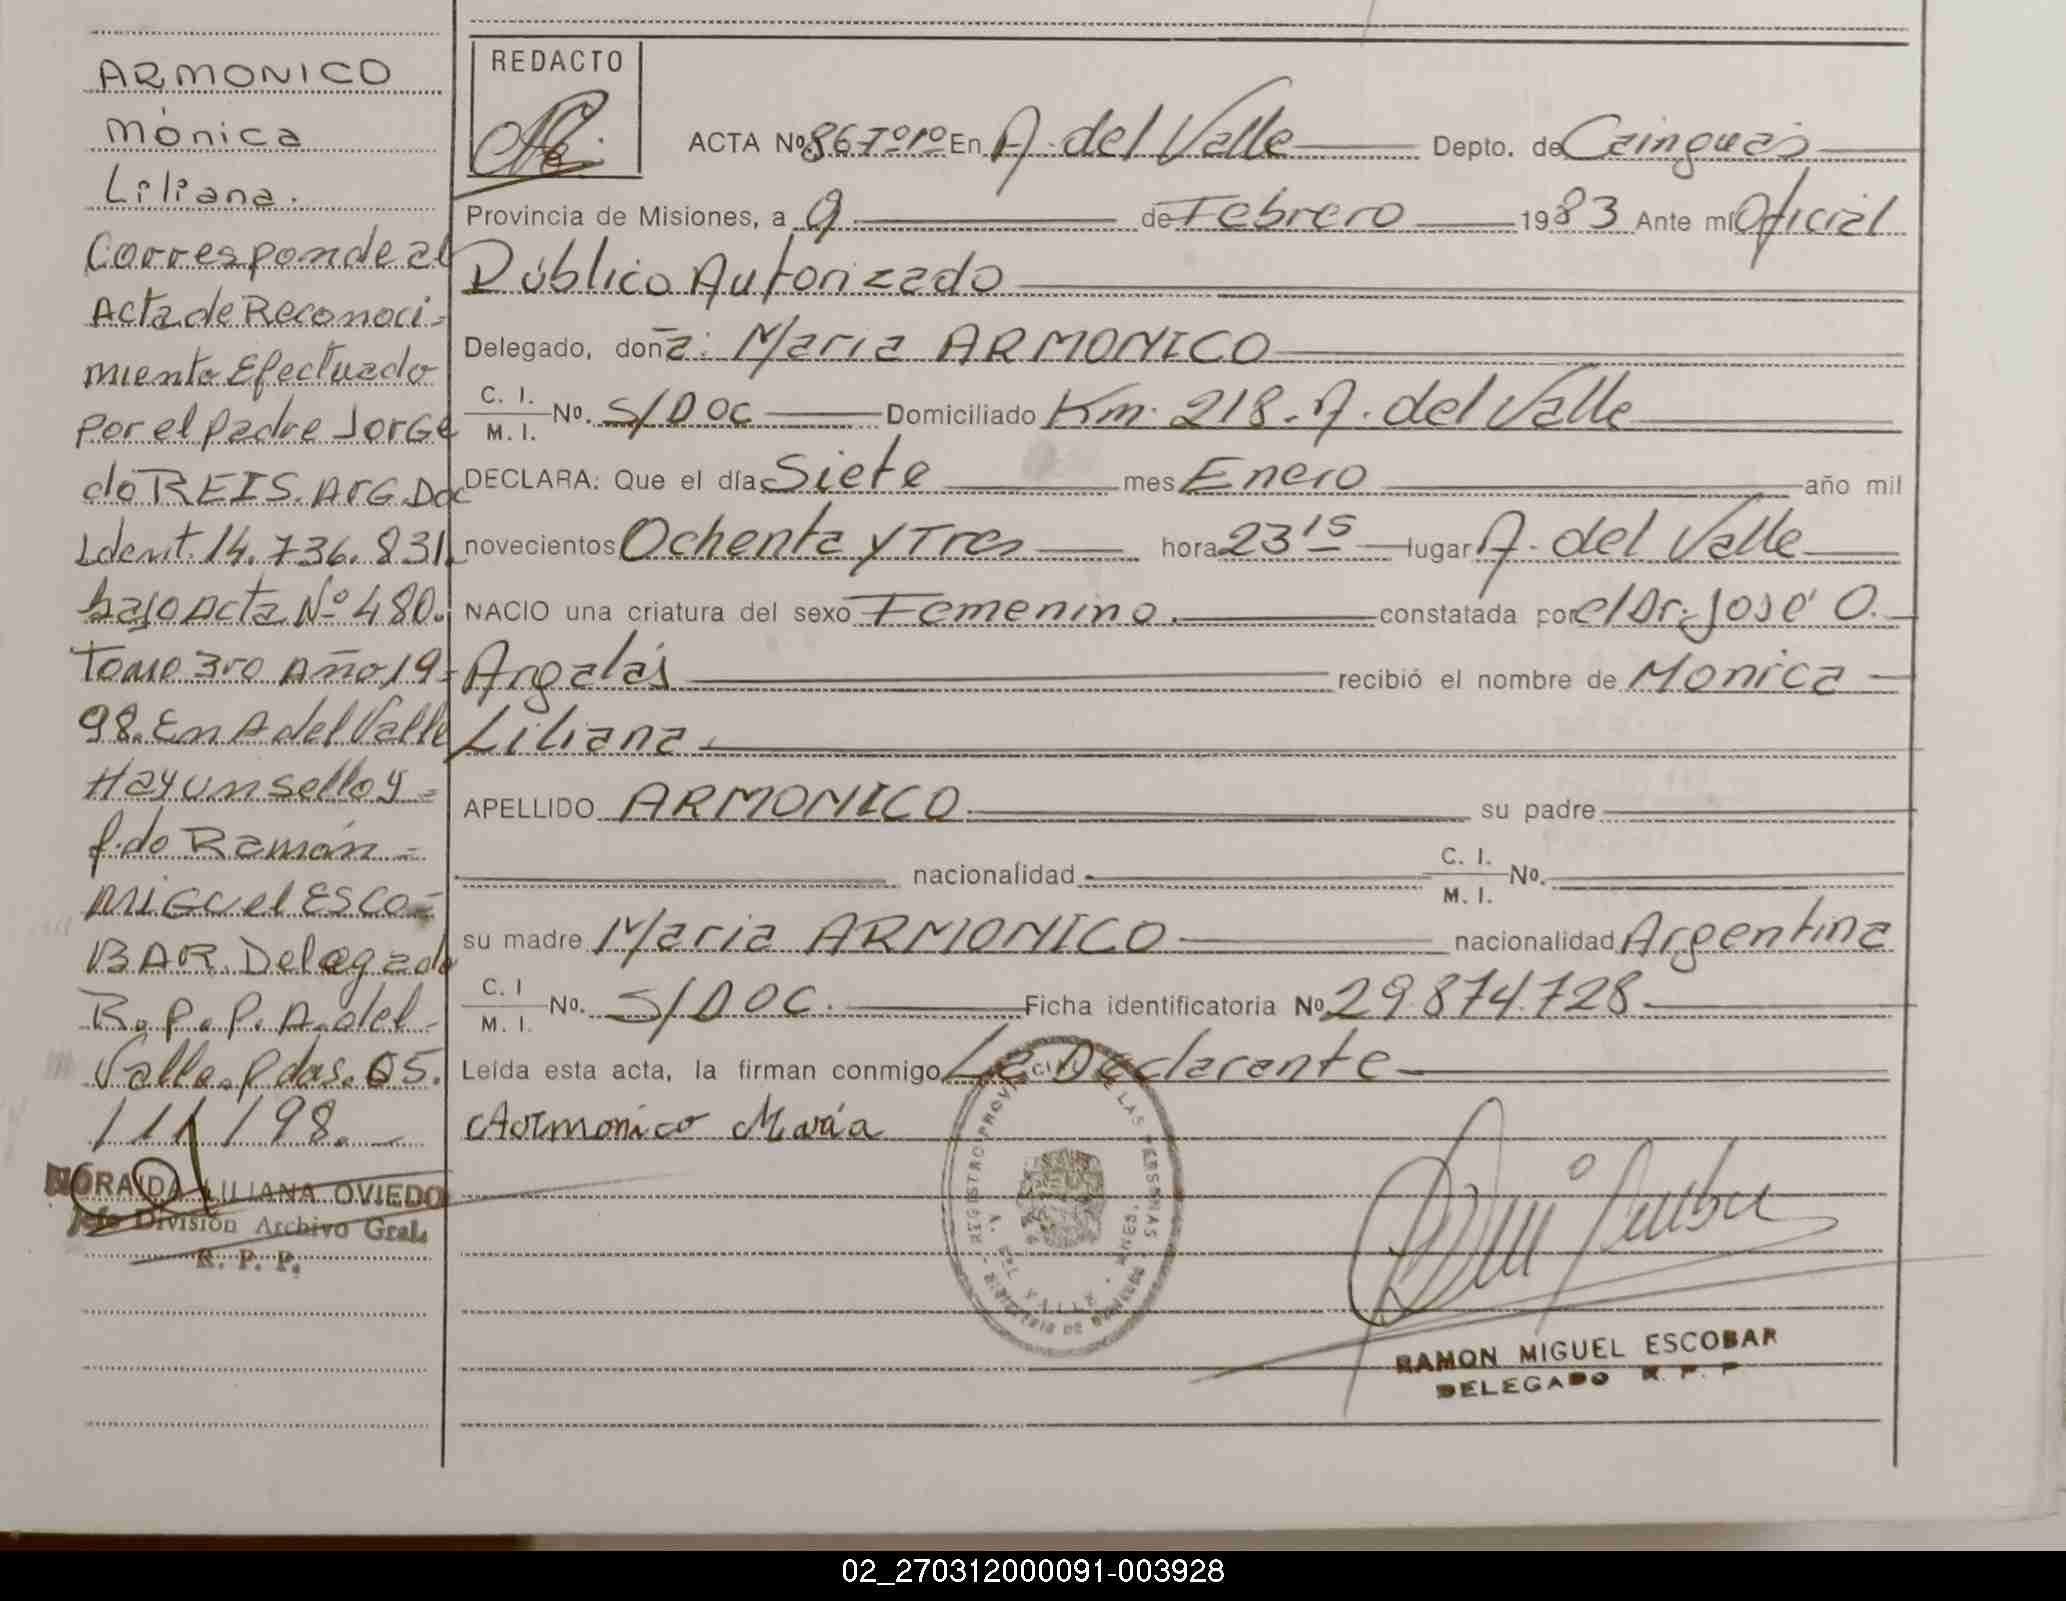 ARMONICO
Mónica
Liliana.
Corresponde al
Acta de Reconoci=
miento Efectuado
por el padre Jorge
do REIS. ArG. Doc
Ident. 14.736.831.
bajo Acta Nº 480.
Tomo 3ro Año 19=
98. En A del Valle
Hay un sello y=
f.do Ramón=
MiGuel ESCO=
BAR. Delegado
R.P.P. A. del
Valle. Pdas. 05.
/11/98.
NORAIDA LILIANA OVIEDO
Jefe División Archivo Gral.
R. P. P.
REDACTO
ACTA Nº 86 Tº 1º En A. del Valle Depto. de Cainguás
Provincia de Misiones, a 9 de Febrero 1983 Ante mí Oficial
Público Autorizado
Delegado, doña: Maria ARMONICO
C. I.
M. I. Nº. S/DOC Domiciliado Km. 218. A. del Valle
DECLARA: Que el día Siete mes Enero año mil
novecientos Ochenta y Tres hora 23 15 lugar A. del Valle
NACIO una criatura del sexo Femenino. constatada por el Dr. José O.
Argalás recibió el nombre de Monica
Liliana
APELLIDO ARMONICO su padre
nacionalidad C. I.
M. I. Nº.
su madre Maria ARMONICO nacionalidad Argentina
C. I
M. I. Nº. S/DOC. Ficha identificatoria Nº 29.874.728.
Leída esta acta, la firman conmigo La Declarante
Armonico María
REGISTRO PROVINCIAL DE LAS PERSONAS
RAMON MIGUEL ESCOBAR
DELEGADO R. P. P
02_270312000091-003928